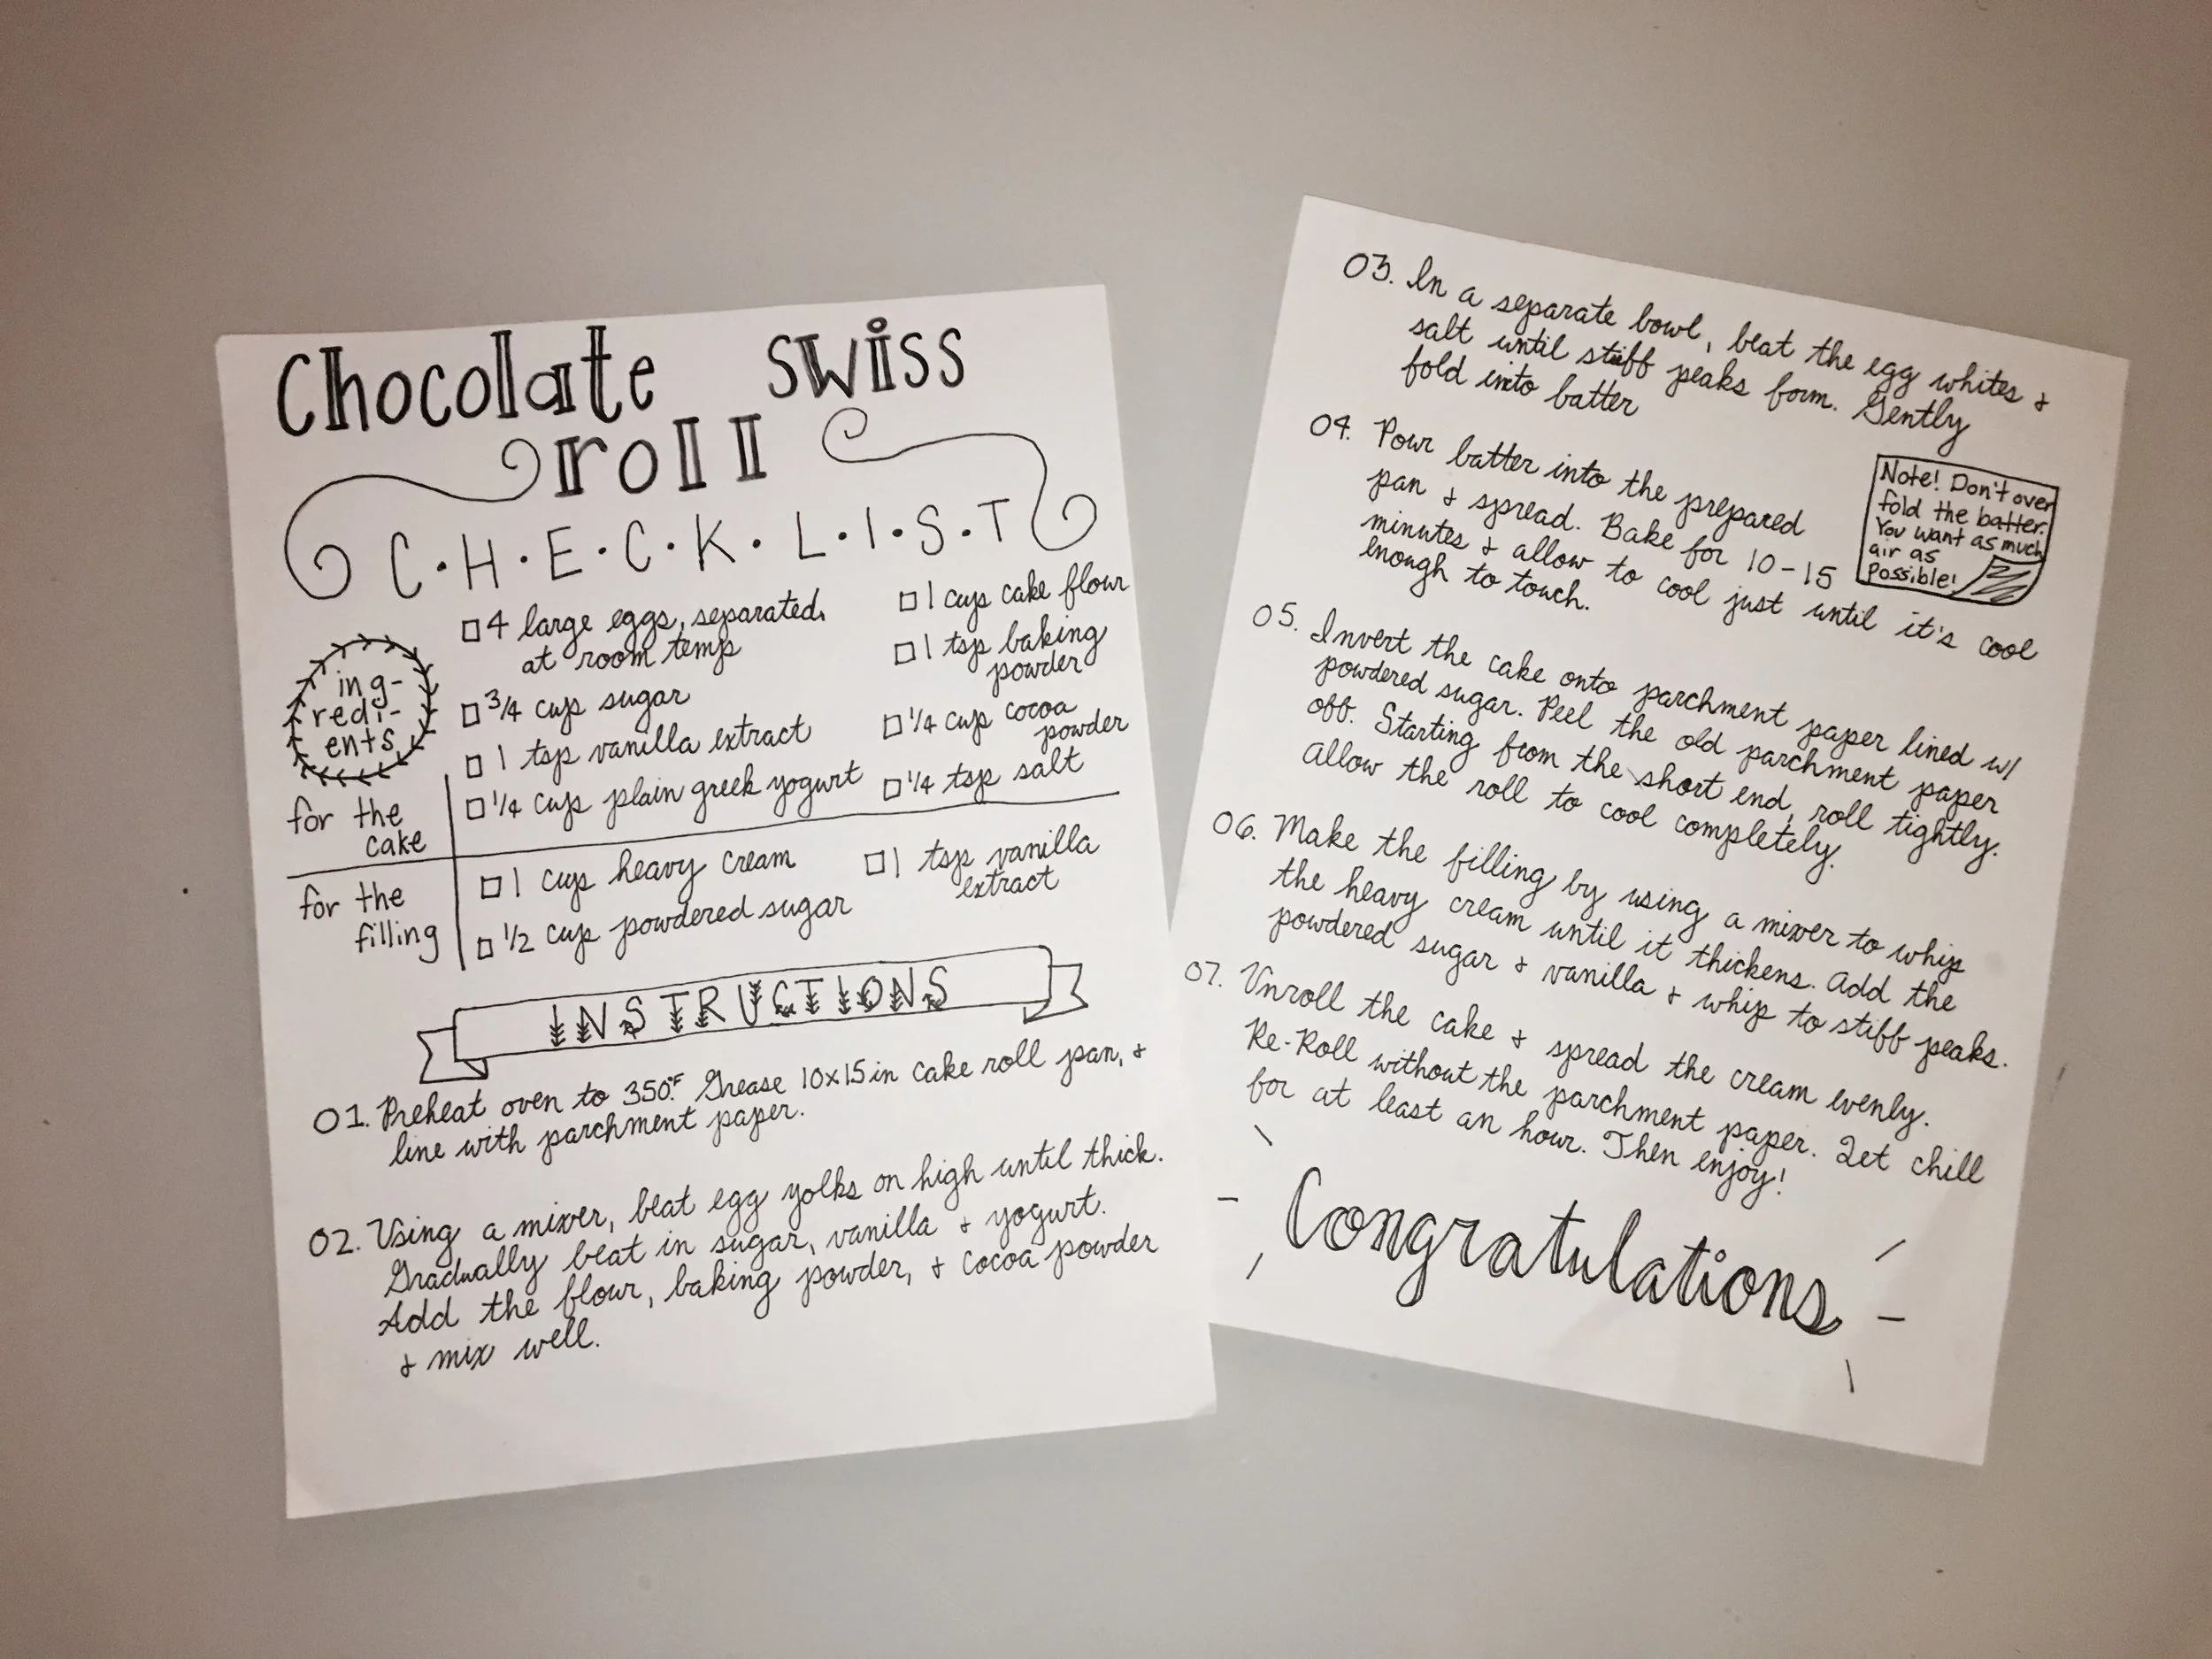 Chocolate swiss
roll
C·H·E·C·K·L·I·S·T
ing-
redi-
ents
for the
cake
□ 4 large eggs, separated,
at room temp
□ 3/4 cup sugar
□ 1 tsp vanilla extract
□ 1/4 cup plain greek yogurt
□ 1 cup cake flour
□ 1 tsp baking
powder
□ 1/4 cup cocoa
powder
□ 1/4 tsp salt
for the
filling
□ 1 cup heavy cream
□ 1/2 cup powdered sugar
□ 1 tsp vanilla
extract
INSTRUCTIONS
01. Preheat oven to 350°F. Grease 10x15in cake roll pan, &
line with parchment paper.
02. Using a mixer, beat egg yolks on high until thick.
Gradually beat in sugar, vanilla & yogurt.
Add the flour, baking powder, & cocoa powder
& mix well.
03. In a separate bowl, beat the egg whites &
salt until stiff peaks form. Gently
fold into batter
04. Pour batter into the prepared
pan & spread. Bake for 10-15
minutes & allow to cool just until it's cool
enough to touch.
Note! Don't over
fold the batter.
You want as much
air as
possible!
05. Invert the cake onto parchment paper lined w/
powdered sugar. Peel the old parchment paper
off. Starting from the short end, roll tightly.
Allow the roll to cool completely.
06. Make the filling by using a mixer to whip
the heavy cream until it thickens. Add the
powdered sugar & vanilla & whip to stiff peaks.
07. Unroll the cake & spread the cream evenly.
Re-Roll without the parchment paper. Let chill
for at least an hour. Then enjoy!
Congratulations